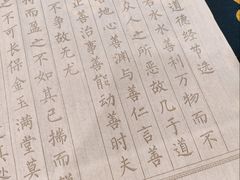 道德经节选
若水水善利万物而不
众人之所恶故几于道
地心善渊与善仁言善
正善治事善能动善时夫
不争故无尤
持而盈之不如其已揣而
之不可长保金玉满堂莫